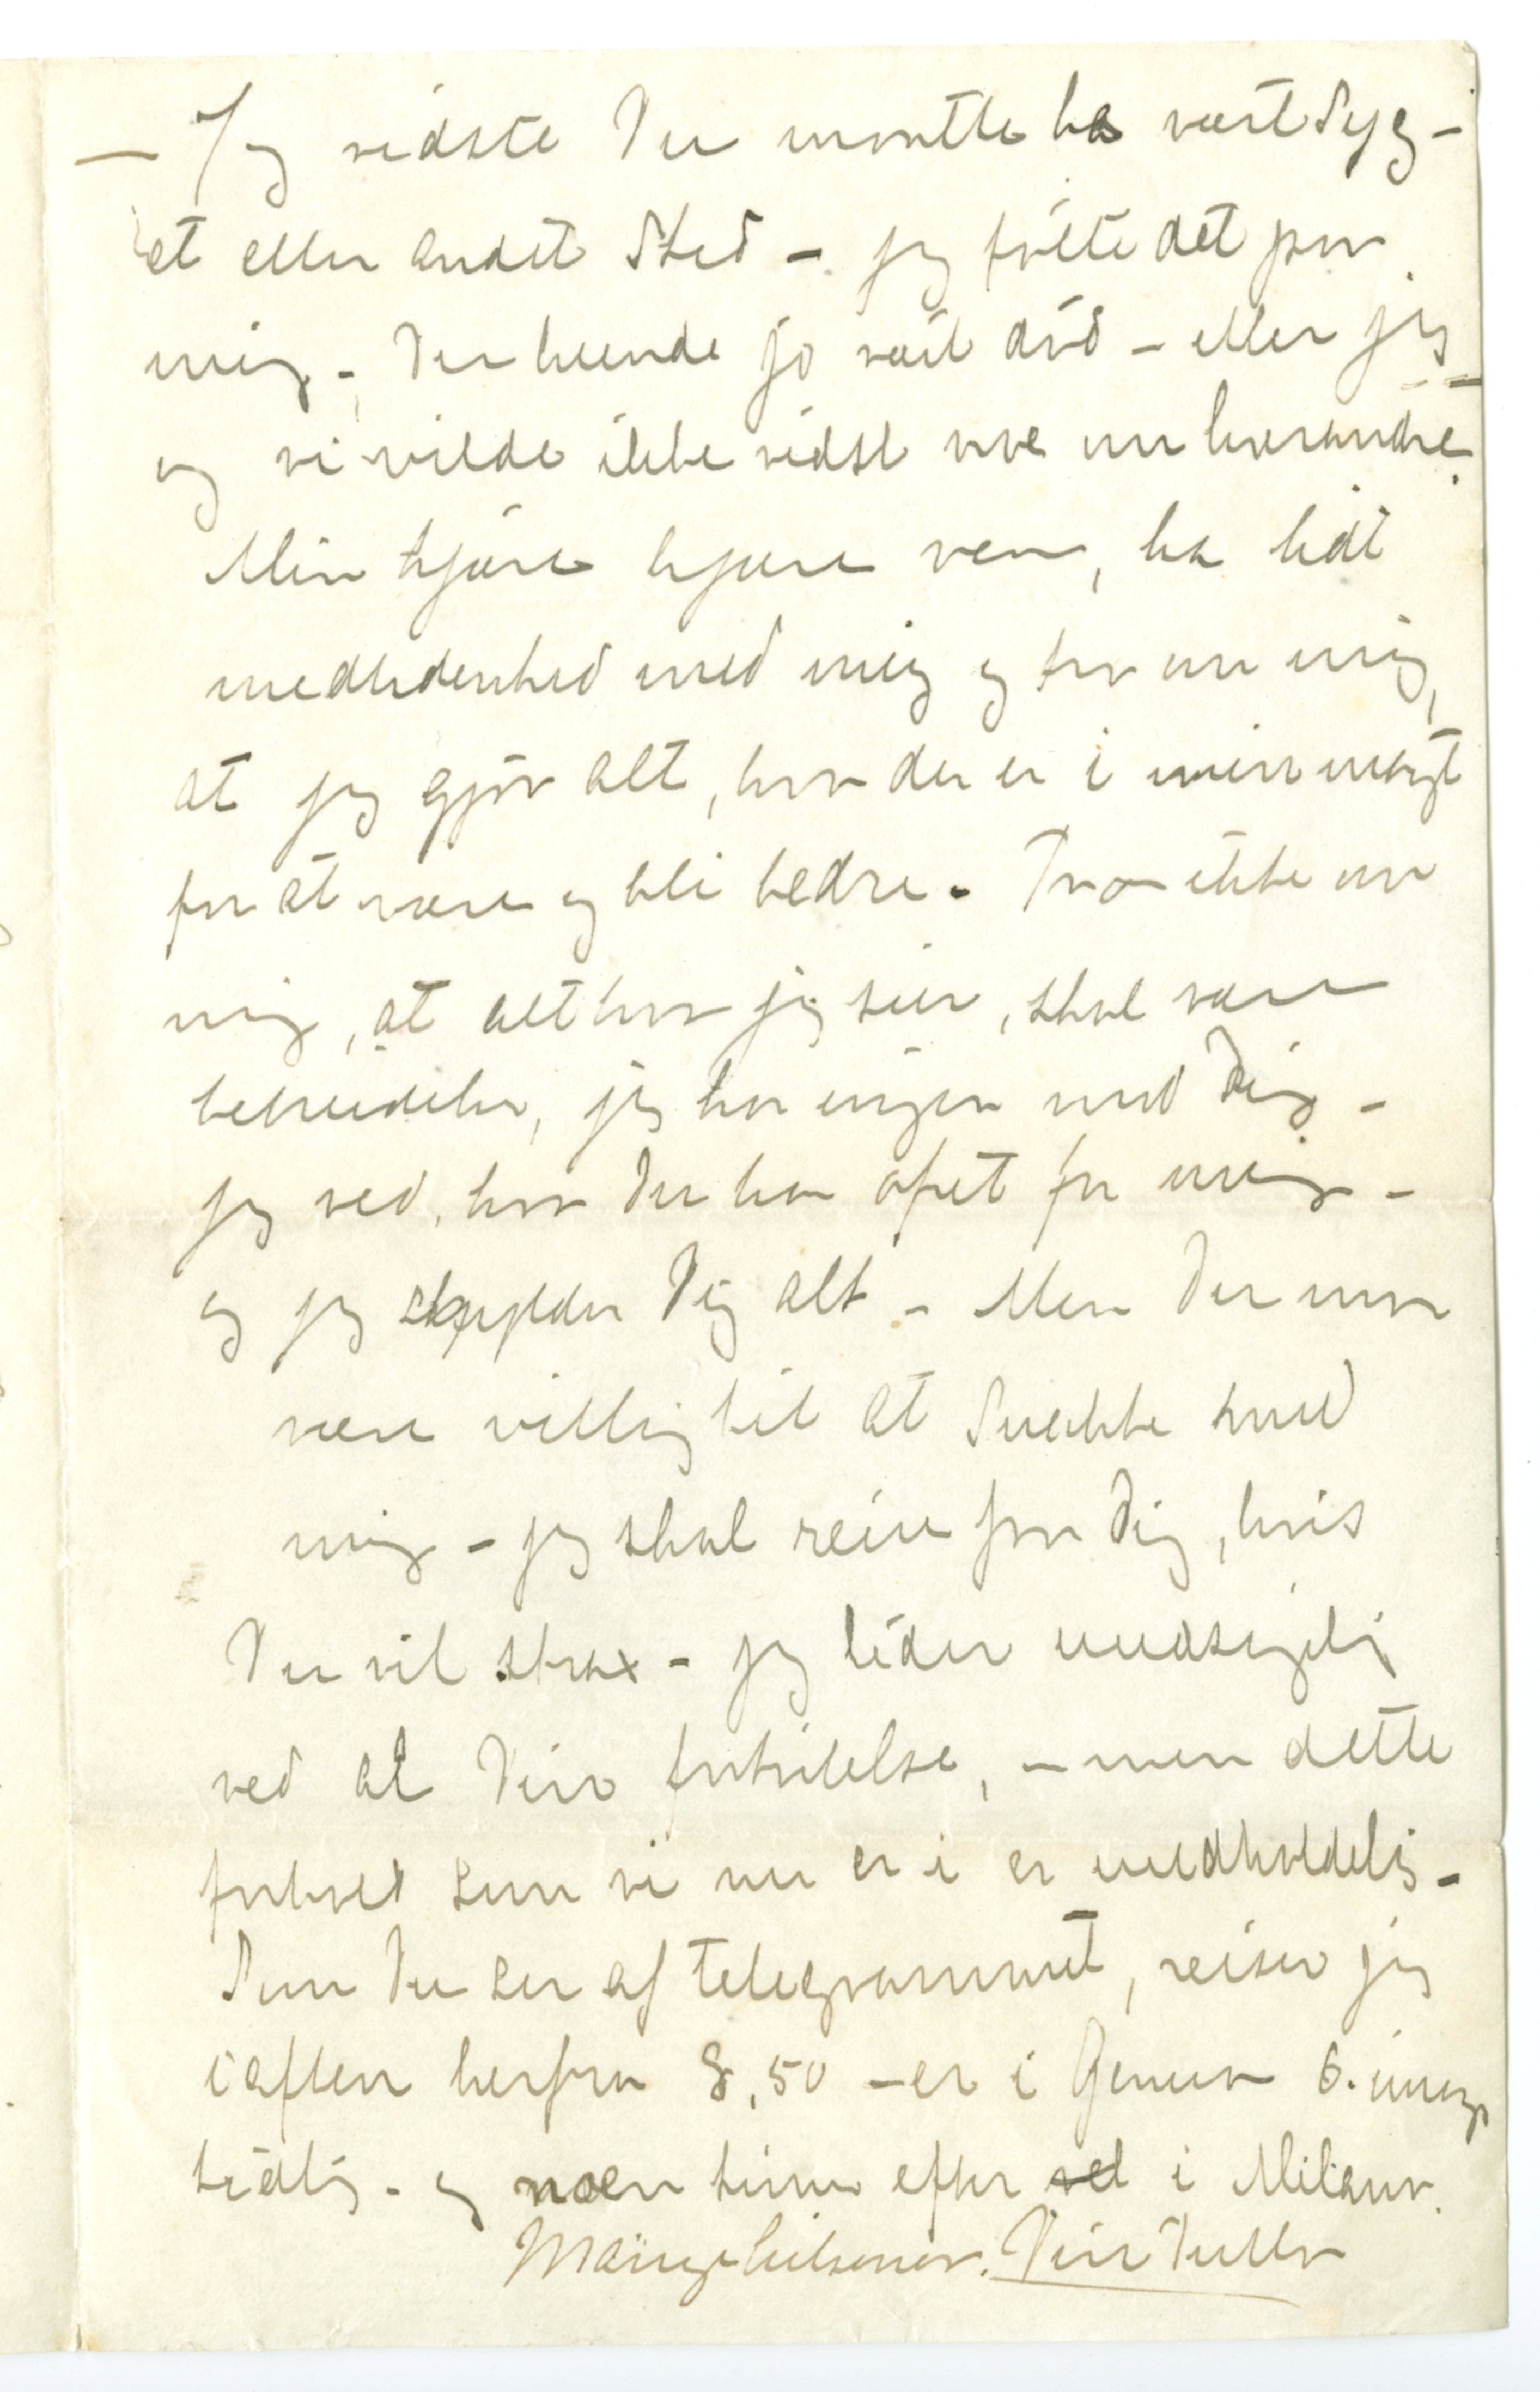 — Jeg vidste Du maatte ha vært Syg –
et eller andet Sted – jeg følte det paa
mig – Du kunde jo vært død – eller jeg –
og vi vilde ikke vidst noe om hverandre.
Min kjære kjære ven, ha lidt
medlidenhed med mig og tro om mig,
at jeg gjør alt, hva der er i min magt
for at være og bli bedre. Tro ikke om
mig, at alt hva jeg sier, skal være
bebreidelser, jeg har ingen mod Dig –
jeg ved, hva Du har ofret for mig –
og jeg skylder Dig alt – Men Du maa
være villig til at snakke med
mig – jeg skal reise fra Dig, hvis
Du vil strax – jeg lider uudsigelig
ved al Din fortvilelse, – men dette
forhold som vi nu er i er uudholdelig –
Som Du ser af telegrammet, reiser jeg
iaften herfra 8,50 – er i Genua 6. imorg
tidlig – og noen timer efter i Milano.
Mange hilsener. Din Tulla